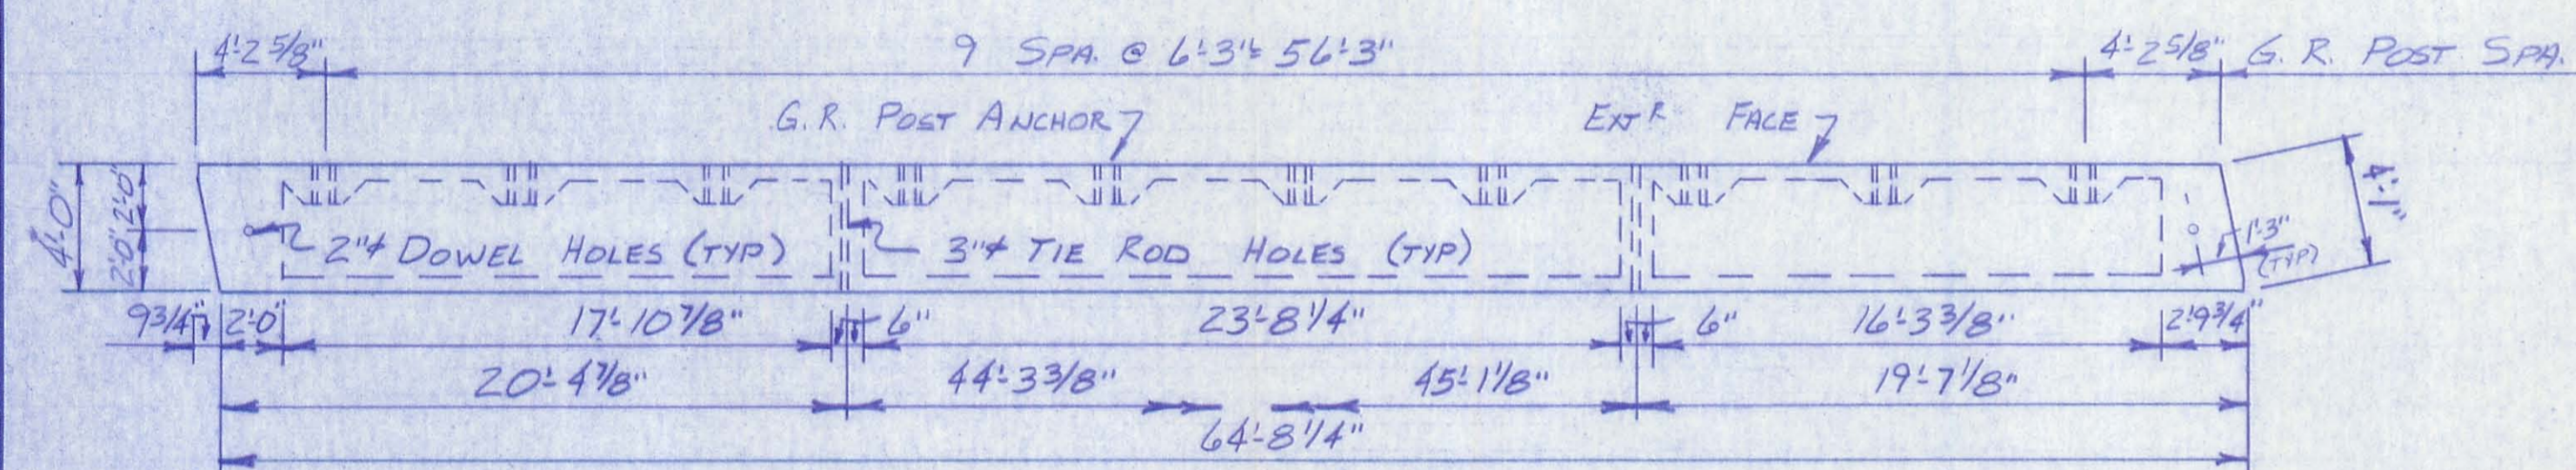 4'-2 5/8" 9 SPA. @ 6'-3"= 56'-3" 4'-2 5/8" G. R. POST SPA.
G. R. POST ANCHOR EXT R FACE
4'-0" 2'-0" 2'-0" 4'-1"
2"ϕ DOWEL HOLES (TYP) 3"ϕ TIE ROD HOLES (TYP) 1'-3" (TYP)
9 3/4" 2'-0" 17'-10 7/8" 6" 23'-8 1/4" 6" 16'-3 3/8" 2'-9 3/4"
20'-4 7/8" 44'-3 3/8" 45'-1 1/8" 19'-7 1/8"
64'-8 1/4"